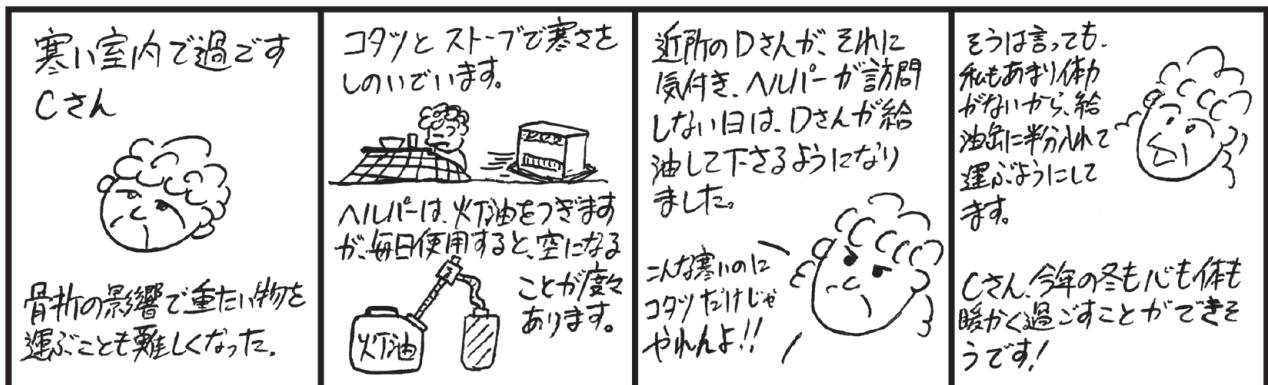 寒い室内で過ごす
Cさん
骨折の影響で重たい物を
運ぶことも難しくなった。
コタツとストーブで寒さを
しのいでいます。
ヘルパーは、灯油をつぎます
が、毎日使用すると、空になる
ことが度々
あります。
灯油
近所のDさんが、それに
気付き、ヘルパーが訪問
しない日は、Dさんが給
油して下さるようになり
ました。
こんな寒いのに
コタツだけじゃ
やれんよ!!
そうは言っても、
私もあまり体力
がないから、給
油缶に半分入れて
運ぶようにして
ます。
Cさん、今年の冬も心も体も
暖かく過ごすことができそ
うです!